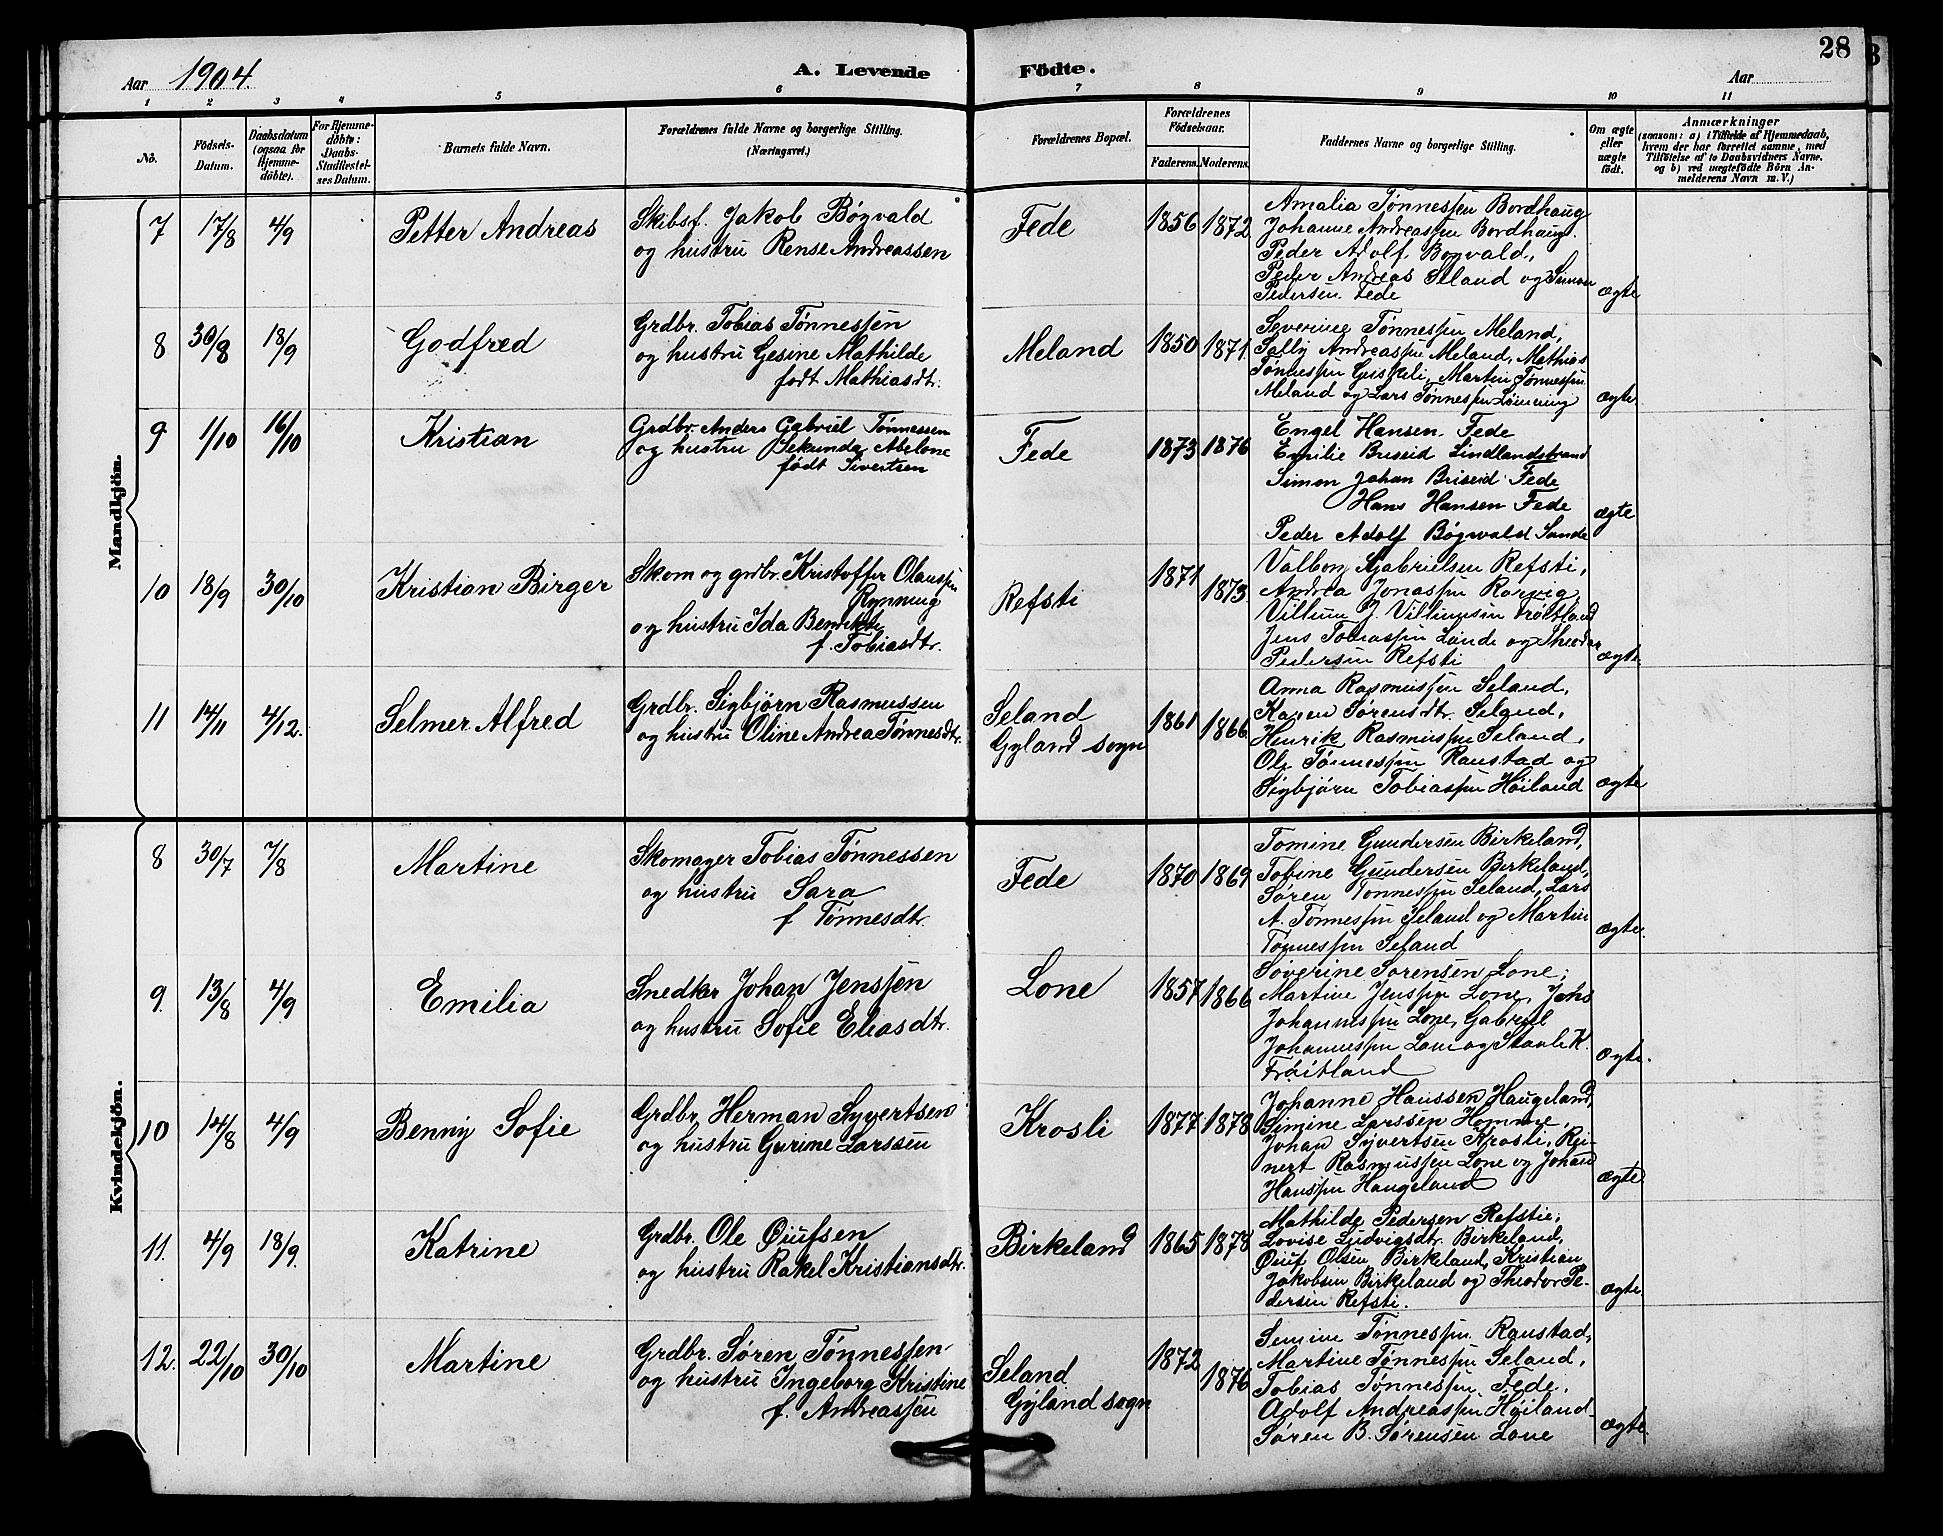 28
Aar 1904. A. Levende Födte. Aar
1 2 3 4 5 6 7 8 9 10 11
No.
Fødsels-Datum.
Daabsdatum (ogsaa for Hjemme-døbte).
For Hjemme-døbte: Daabs-Stadfæstel-ses Datum.
Barnets fulde Navn.
Forældrenes fulde Navne og borgerlige Stilling.
(Næringsvei.)
Forældrenes Bopæl.
Forældrenes Fødselsaar.
Faderens. Moderens.
Faddernes Navne og borgerlige Stilling.
Om ægte eller uægte født.
Anmærkninger
(saasom: a) i Tilfælde af Hjemmedaab,
hvem der har forrettet samme, med
Tilføielse af to Daabsvidners Navne,
og b) ved uægtefødte Börn An-
melderens Navn m. V.)
Mandkjön.
7 17/8 4/9 Petter Andreas
Skibsf. Jakob Bøgvald
og hustru Rense Andreassen
Fede 1856 1872
Amalia Tønnessen Bordhaug
Johanne Andreassen Bordhaug.
Peder Adolf Bøgvald,
Peder Andreas Seland og Simon
Pedersen Fede
ægte
8 30/8 18/9 Godfred
Grdbr. Tobias Tønnessen
og hustru Gesine Mathilde
født Mathiasdtr.
Meland 1850 1871
Severine Tønnessen Meland,
Sally Andreassen Meland, Mathias
Tønnessen Guskeli, Martin Tønnessen
Meland og Lars Tønnessen
ægte
9 1/10 16/10 Kristian
Grdbr. Anders Gabriel Tønnessen
og hustru Sekunda Abelone
født Sivertsen
Fede 1873 1876
Engel Hansen Fede
Emilie Briseid Lindlandstrand
Simon Johan Briseid Fede
Hans Hansen Fede
Peder Adolf Bøgvald Sande
ægte
10 18/9 30/10 Kristian Birger
Skom og grdbr. Kristoffer Olaussen
Rynning
og hustru Ida Bendikte
f. Tobiasdtr.
Refsti 1871 1873
Valborg Gabrielsen Refsti,
Andrea Jonassen Rørvig,
Villum J. Villumsen Frøitland
Jens Tobiassen Lande og Theodor
Pedersen Refsti
ægte
11 14/11 4/12. Selmer Alfred
Grdbr. Sigbjørn Rasmussen
og hustru Oline Andrea Tønnesdtr.
Seland
Gyland sogn
1861 1866
Anna Rasmussen Seland,
Karen Sørensdtr. Seland,
Henrik Rasmussen Seland,
Ole Tønnessen Ranstad og
Sigbjørn Tobiassen Høiland
ægte
Kvindekjön.
8 30/7 7/8 Martine
Skomager Tobias Tønnessen
og hustru Sara
f Tønnesdtr.
Fede 1870 1869
Tomine Gundersen Birkeland,
Tobine Gundersen Birkeland,
Søren Tønnessen Seland, Lars
A. Tønnessen Seland og Martin
Tønnessen Seland
ægte.
9. 13/8 4/9 Emilia
Snedker Johan Jenssen
og hustru Sofie Eliasdtr.
Lone 1857 1866
Søverine Sørensen Lone,
Martine Jenssen Lone, Johs
Johannessen Lone, Gabriel
Johannessen Lone og Staale K.
Frøitland
ægte.
10 14/8 4/9 Benny Sofie
Grdbr. Herman Syvertsen
og hustru Gurine Larssen
Krosli 1877 1878
Johanne Hanssen Haugeland,
Simine Larssen Homme,
Johan Syvertsen Krosli, Rei-
nert Rasmussen Lone og Johan
Hanssen Haugeland
ægte
11. 4/9 18/9. Katrine
Grdbr. Ole Øiufsen
og hustru Rakel Kristiansdtr.
Birkeland 1865 1878
Mathilde Pedersen Refstie,
Lovise Ludvigsdtr. Birkeland,
Øiuf Olsen Birkeland, Kristian
Jakobsen Birkeland og Theodor Pe-
dersen Refsti.
ægte
12. 22/10 30/10 Martine
Grdbr. Søren Tønnessen
og hustru Ingeborg Kristine
f. Andreassen
Seland
Gyland sogn
1872 1876
Semine Tønnessen Ranstad,
Martine Tønnessen Seland,
Tobias Tønnessen Fede,
Adolf Andreassen Høiland
Søren B. Sørensen Lone
ægte